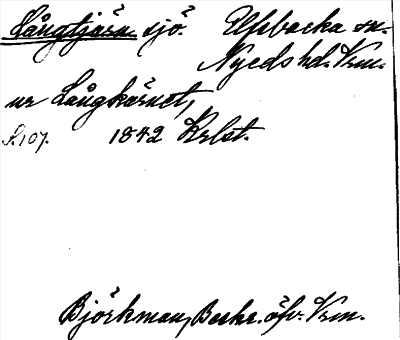 Långtjärn. sjö. Ulfsbacka sn.
Nyeds hd. Vrm.
ur Långkärnet,
S. 107. 1842 Krlst.
Björkman, Beskr. öfv. Vrm.